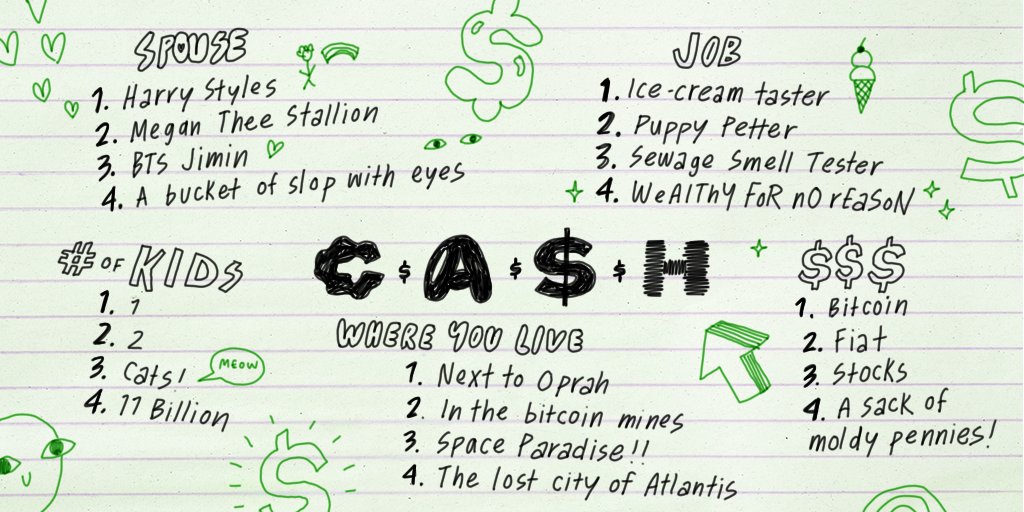 SPOUSE
1. Harry Styles
2. Megan Thee Stallion
3. BTS Jimin
4. A bucket of slop with eyes
JOB
1. Ice-cream taster
2. Puppy Petter
3. Sewage Smell Tester
4. WeAlThY FoR nO rEaSoN
# OF KIDs
1. 1
2. 2
3. Cats!
MEOW
4. 11 Billion
C $ A $ $ $ H
WHERE YOU LIVE
1. Next to Oprah
2. In the bitcoin mines
3. Space Paradise!!
4. The lost city of Atlantis
$$$
1. Bitcoin
2. Fiat
3. Stocks
4. A sack of
moldy pennies!